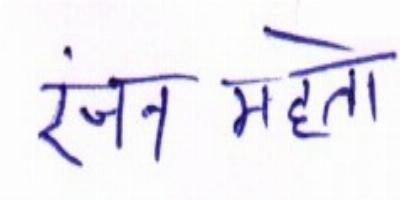 रंजन महतो